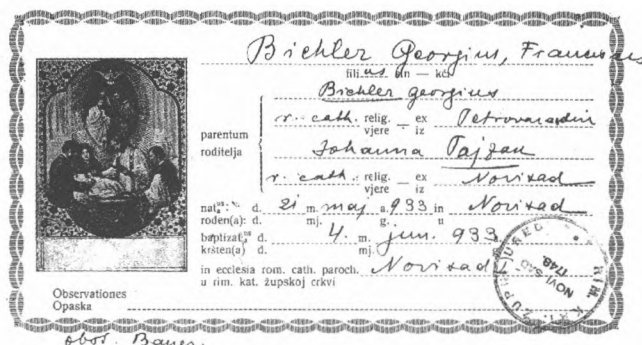 Bichler Georgius, Franciscus
fili us sin — kći
Bichler Georgius
parentum
roditelja
r. cath. relig. vjere — ex iz Petrovaradin
Johanna Pajzan
r. cath. relig. vjere — ex iz Novisad
nat us d. 21 m. maj a. 933 in Novisad
rođen(a): d. mj. g. u
baptizat us d. 4. m. jun. 933.
kršten(a) d. mj.
in ecclesia rom. cath. paroch. Novisad
u rim. kat. župskoj crkvi
Observationes
Opaska
ŽUPNI URED RIM. KAT.
NOVI SAD
1748.
obst. Bauer.